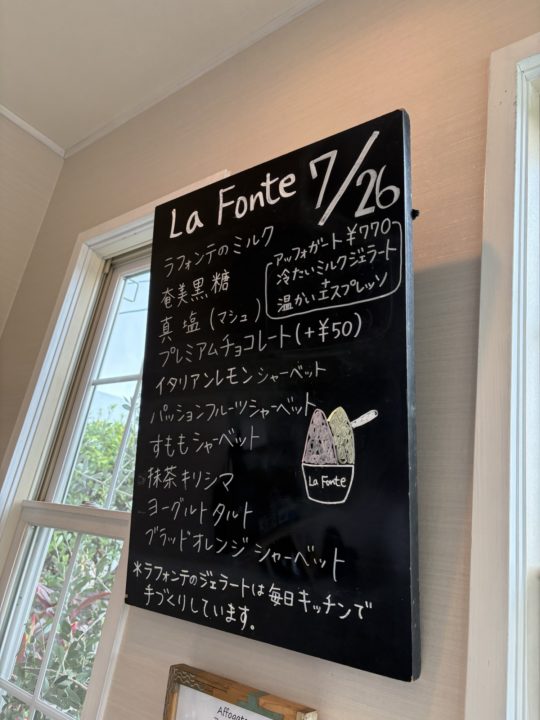 La Fonte 7/26
ラフォンテのミルク
奄美黒糖
真塩(マシュ)
プレミアムチョコレート(+¥50)
イタリアンレモンシャーベット
パッションフルーツシャーベット
すももシャーベット
抹茶キリシマ
ヨーグルトタルト
ブラッドオレンジシャーベット
*ラフォンテのジェラートは毎日キッチンで
手づくりしています。
アッフォガート¥770
冷たいミルクジェラート
+
温かいエスプレッソ
La Fonte